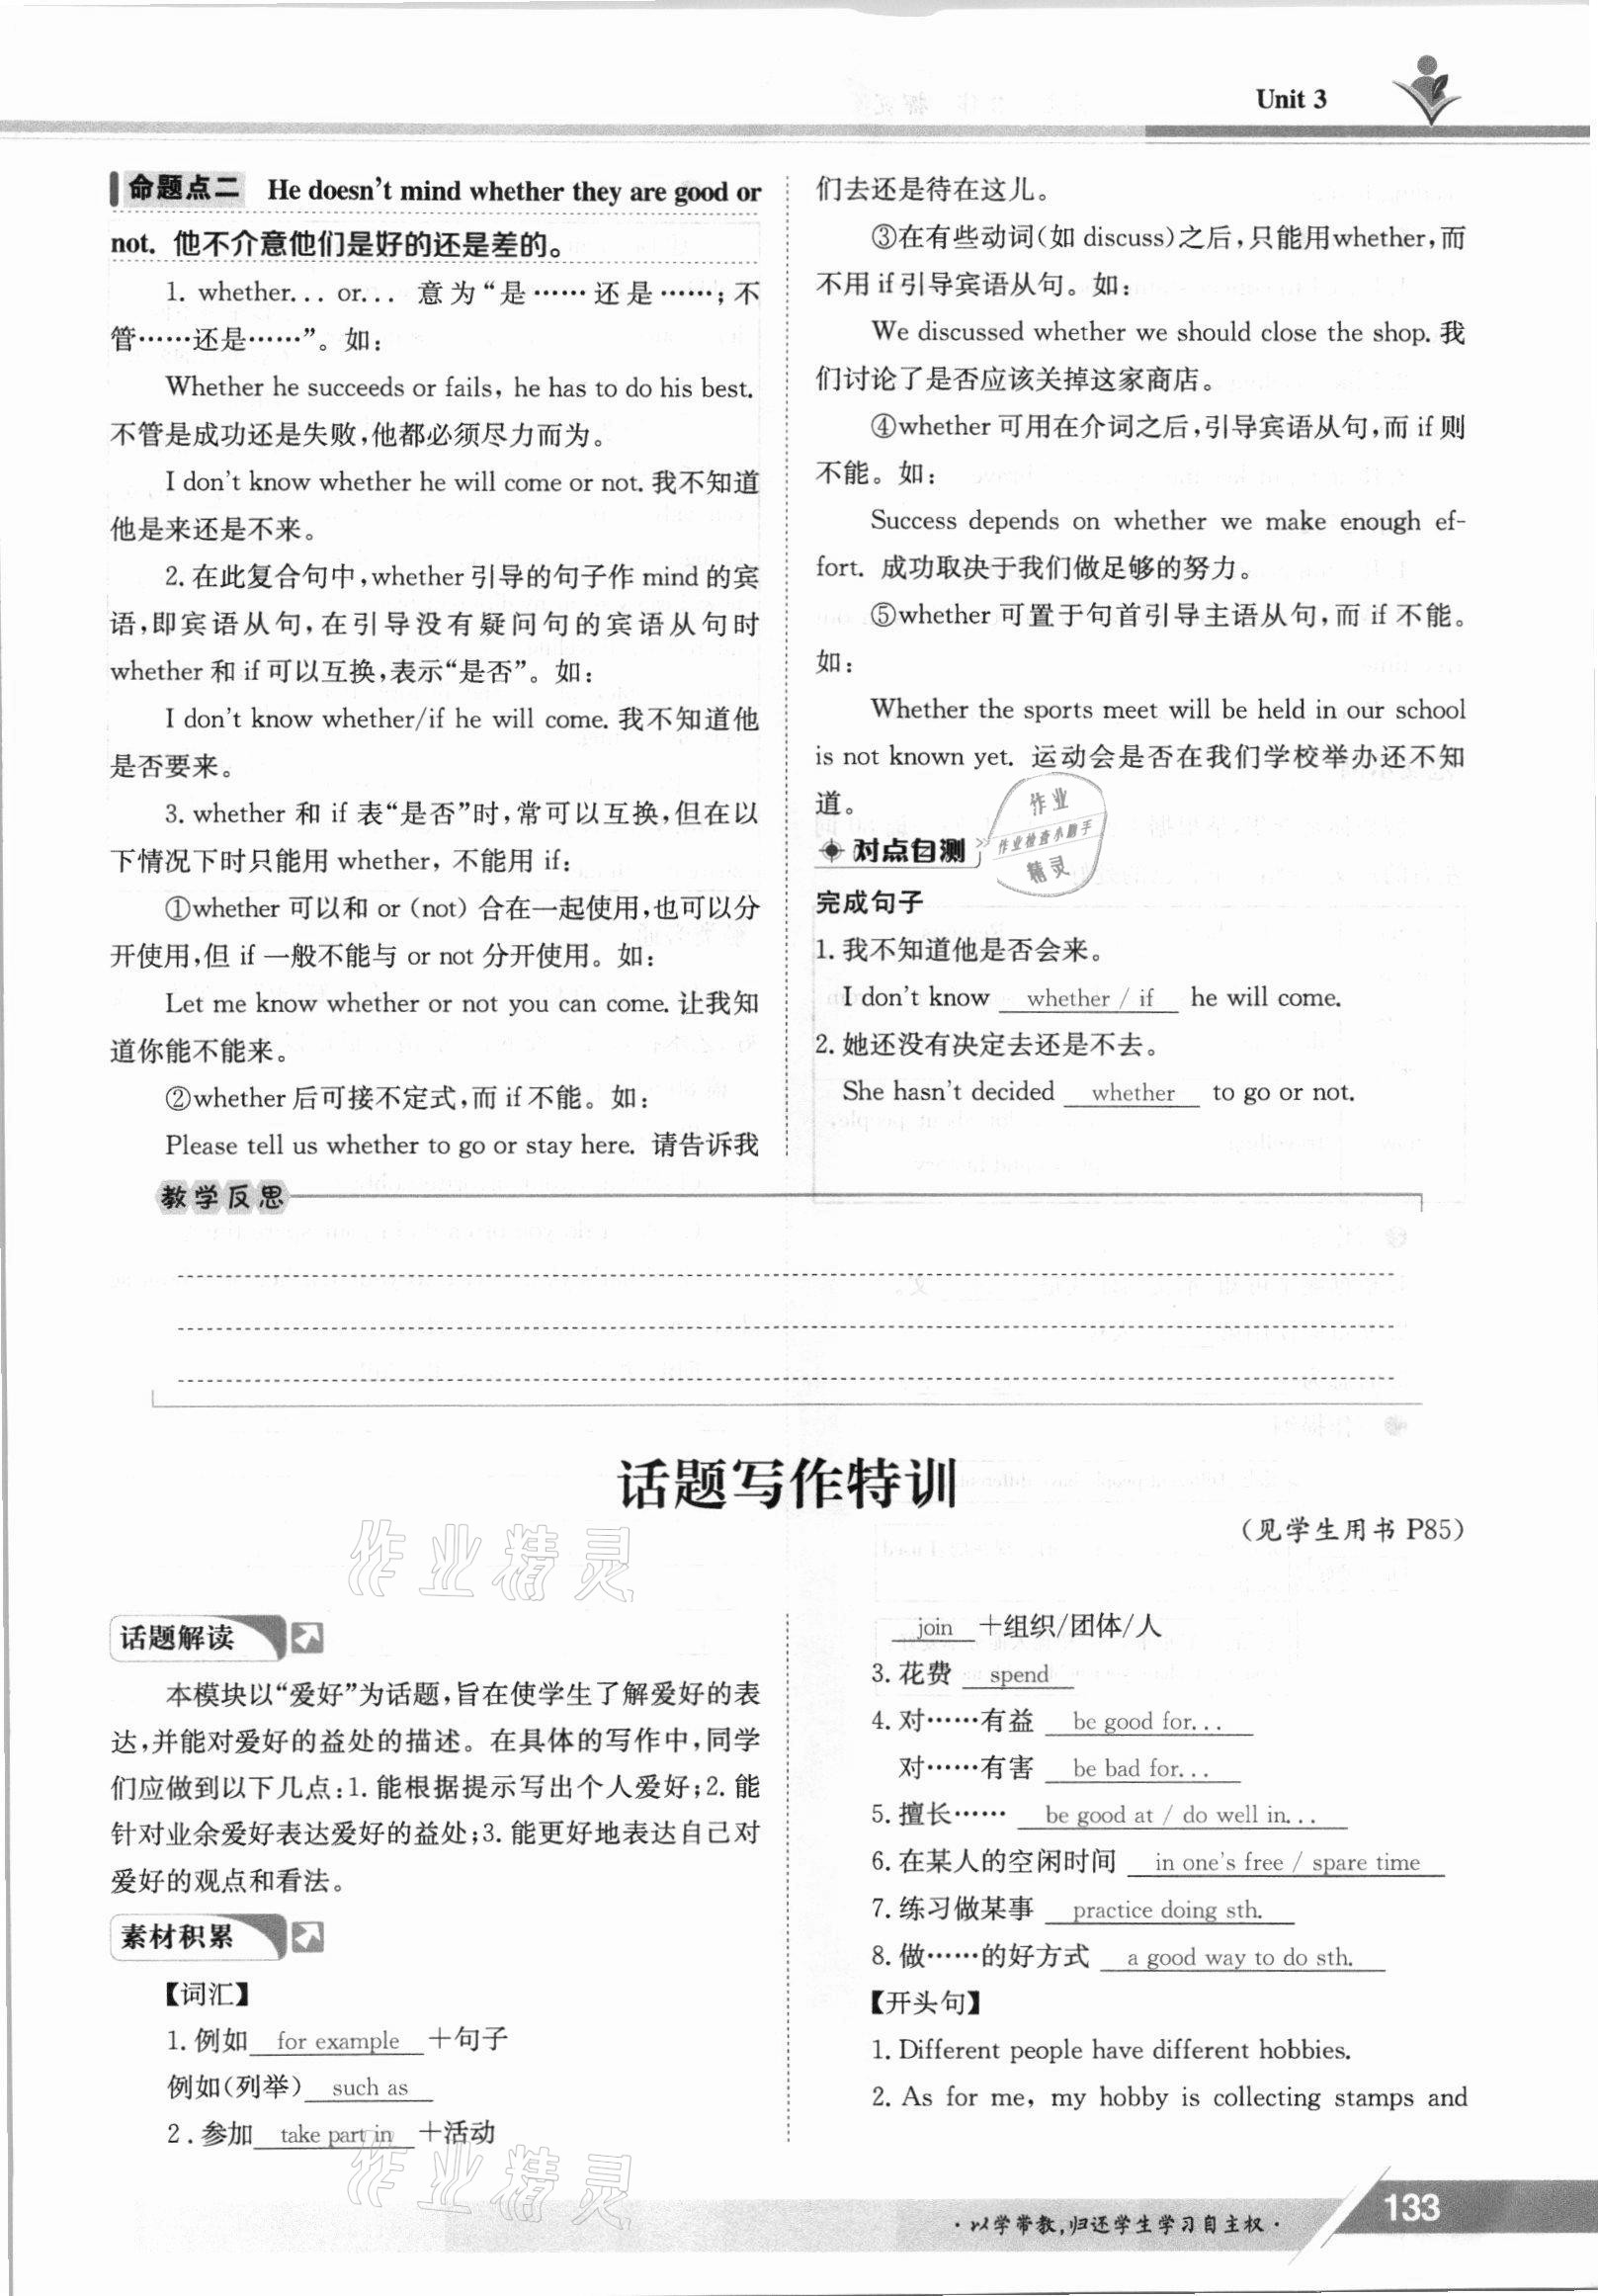 Unit 3
命题点二 He doesn't mind whether they are good or
not. 他不介意他们是好的还是差的。
1. whether... or... 意为“是……还是……；不
管……还是……”。如：
Whether he succeeds or fails, he has to do his best.
不管是成功还是失败，他都必须尽力而为。
I don't know whether he will come or not. 我不知道
他是来还是不来。
2. 在此复合句中，whether 引导的句子作 mind 的宾
语，即宾语从句，在引导没有疑问句的宾语从句时
whether 和 if 可以互换，表示“是否”。如：
I don't know whether/if he will come. 我不知道他
是否要来。
3. whether 和 if 表“是否”时，常可以互换，但在以
下情况下时只能用 whether，不能用 if：
①whether 可以和 or (not) 合在一起使用，也可以分
开使用，但 if 一般不能与 or not 分开使用。如：
Let me know whether or not you can come. 让我知
道你能不能来。
②whether 后可接不定式，而 if 不能。如：
Please tell us whether to go or stay here. 请告诉我
们去还是待在这儿。
③在有些动词(如 discuss)之后，只能用whether，而
不用 if 引导宾语从句。如：
We discussed whether we should close the shop. 我
们讨论了是否应该关掉这家商店。
④whether 可用在介词之后，引导宾语从句，而 if 则
不能。如：
Success depends on whether we make enough ef-
fort. 成功取决于我们做足够的努力。
⑤whether 可置于句首引导主语从句，而 if 不能。
如：
Whether the sports meet will be held in our school
is not known yet. 运动会是否在我们学校举办还不知
道。
对点自测
作业
作业检查小助手
精灵
完成句子
1. 我不知道他是否会来。
I don't know whether / if he will come.
2. 她还没有决定去还是不去。
She hasn't decided whether to go or not.
教学反思
话题写作特训
(见学生用书 P85)
作业精灵
话题解读
本模块以“爱好”为话题，旨在使学生了解爱好的表
达，并能对爱好的益处的描述。在具体的写作中，同学
们应做到以下几点：1. 能根据提示写出个人爱好；2. 能
针对业余爱好表达爱好的益处；3. 能更好地表达自己对
爱好的观点和看法。
素材积累
【词汇】
1. 例如 for example ＋句子
例如(列举) such as
2. 参加 take part in ＋活动
join ＋组织/团体/人
3. 花费 spend
4. 对……有益 be good for...
对……有害 be bad for...
5. 擅长…… be good at / do well in...
6. 在某人的空闲时间 in one's free / spare time
7. 练习做某事 practice doing sth.
8. 做……的好方式 a good way to do sth.
【开头句】
1. Different people have different hobbies.
2. As for me, my hobby is collecting stamps and
作业精灵
·以学带教，归还学生学习自主权·
133